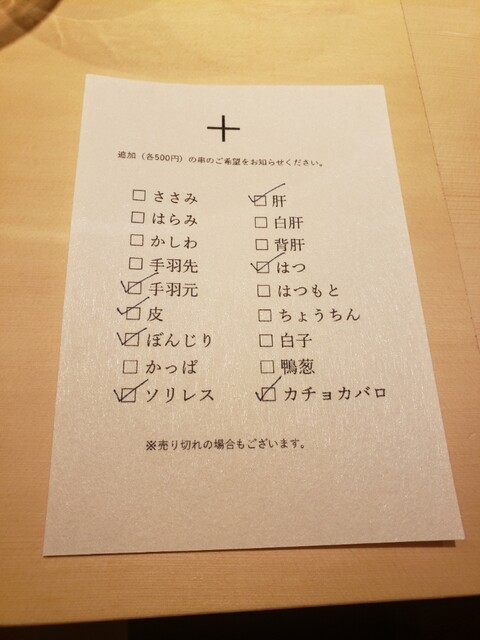 +
追加（各500円）の串のご希望をお知らせください。
☐ ささみ
☐ はらみ
☐ かしわ
☐ 手羽先
☑ 手羽元
☑ 皮
☑ ぼんじり
☐ かっぱ
☑ ソリレス
☑ 肝
☐ 白肝
☐ 背肝
☑ はつ
☐ はつもと
☐ ちょうちん
☐ 白子
☐ 鴨葱
☑ カチョカバロ
※売り切れの場合もございます。